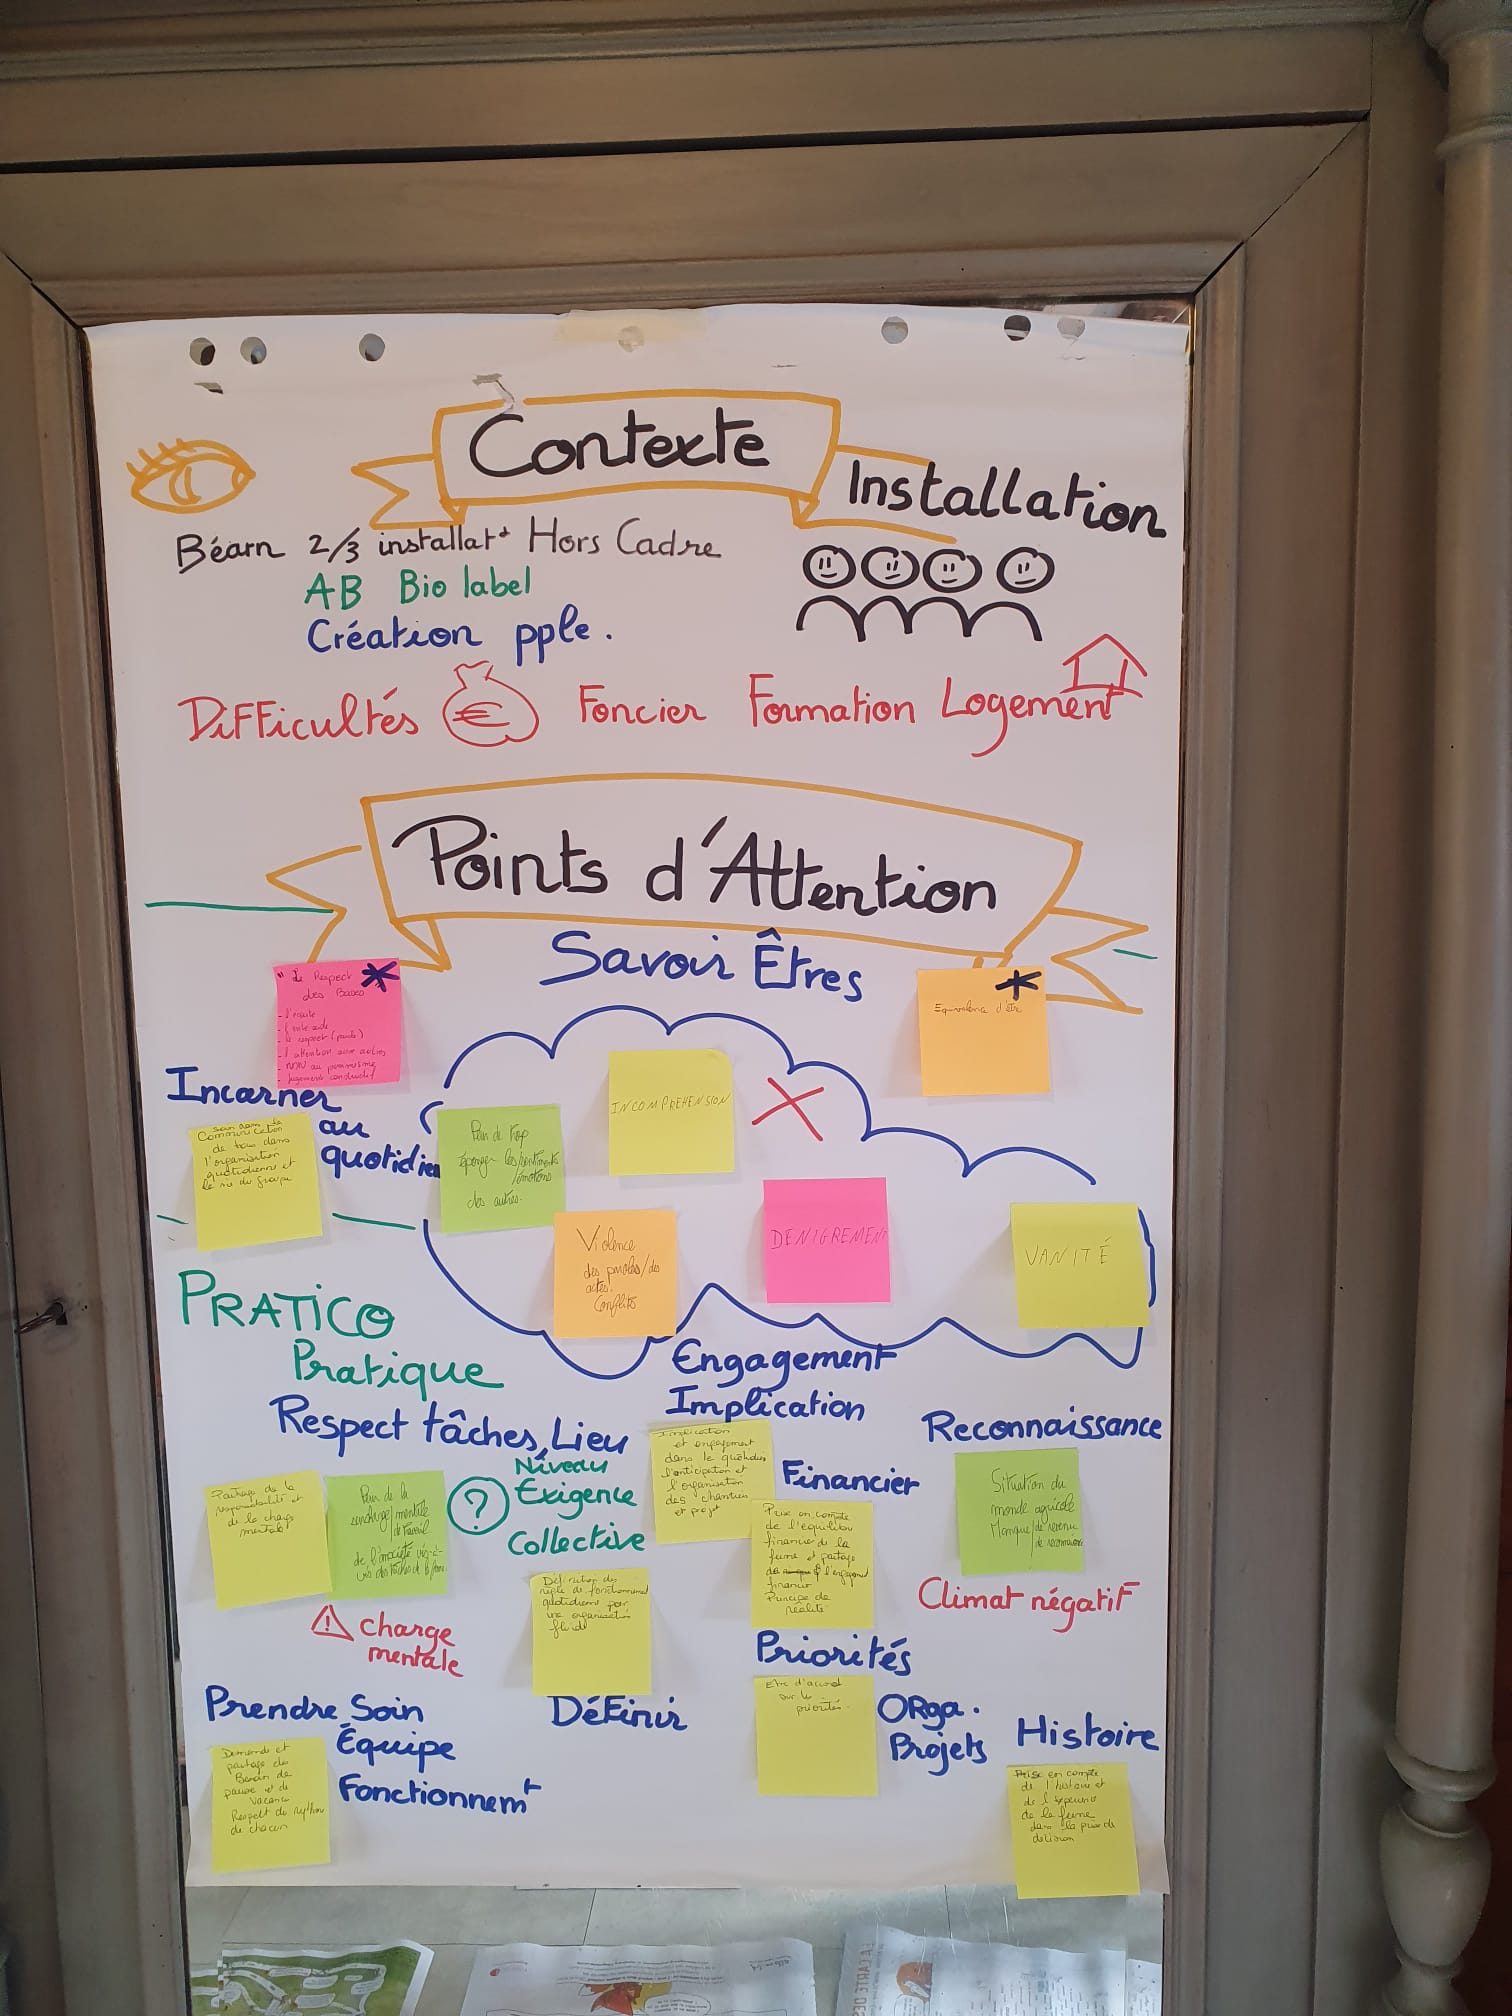 Contexte
Installation
Béarn 2/3 installat° Hors Cadre
AB Bio label
Création pple.
Difficultés € Foncier Formation Logement
Points d'Attention
Savoir Êtres
Respect
des Bases
- l'écoute
- l'entraide
- le respect (parole)
- l'attention aux autres
- jugement constructif
Equivalence d'être
Incarner
au
quotidien
Communication
de tous dans
l'organisation
quotidienne et
la vie du groupe
Peur de trop
éponger les sentiments
/émotions
des autres.
INCOMPREHENSION
Violence
des paroles/des
actes.
Conflits
DENIGREMENT
VANITÉ
PRATICO
Pratique
Respect tâches, Lieu
Engagement
Implication
Reconnaissance
Partage de la
responsabilité et
de la charge
mentale
Peur de la
surcharge/mentale
de travail
de l'anxiété vis-à-
vis des tâches de la ferme.
?
Niveau
Exigence
Collective
Implication
et engagement
dans le quotidien
l'anticipation et
l'organisation
des chantiers
et projet
Financier
Prise en compte
de l'équilibre
financier de la
ferme et partage
financier
Principe de
réalité
Situation du
monde agricole
Manque/de revenu
/de reconnaissance
Climat négatif
charge
mentale
Définition des
règles de fonctionnement
quotidiens pour
une organisation
fluide
Définir
Priorités
Etre d'accord
sur les
priorités.
Orga.
Projets
Prendre Soin
Équipe
Fonctionnemt
Demande et
partage des
Besoin de
pause et de
vacance
Respect du rythme
de chacun
Histoire
Prise en compte
de l'histoire et
de l'experience
de la ferme
dans la prise de
décision
LA CARTE DES